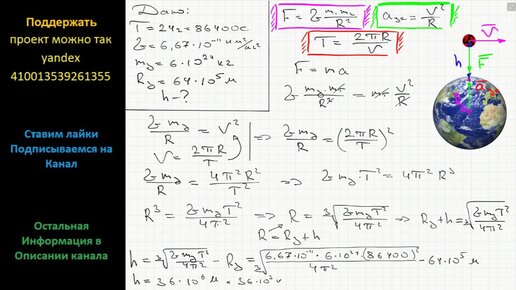 Поддержать
проект можно так
yandex
410013539261355
Ставим лайки
Подписываемся на
Канал
Остальная
Информация в
Описании канала
Дано:
T = 24ч = 86400с
G = 6,67·10⁻¹¹ Н м²/кг²
mз = 6·10²⁴ кг
Rз = 64·10⁵ м
h - ?
F = G m₁m₂/R²
aцс = V²/R
T = 2πR/V
F = ma
G mз·m/R² = m V²/R
G mз/R = V²
V = 2πR/T
=> G mз/R = (2πR/T)²
G mз/R = 4π²R²/T² => G mз·T² = 4π²R³
R³ = G mз T²/4π² => R = ∛(G mз T²/4π²) => Rз + h = ∛(G mз T²/4π²)
R = Rз + h
h = ∛(G mз T²/4π²) - Rз = ∛(6,67·10⁻¹¹·6·10²⁴·(86400)²/4π²) - 64·10⁵ м
h = 36·10⁶ м = 36·10³ к
V
h
F
R